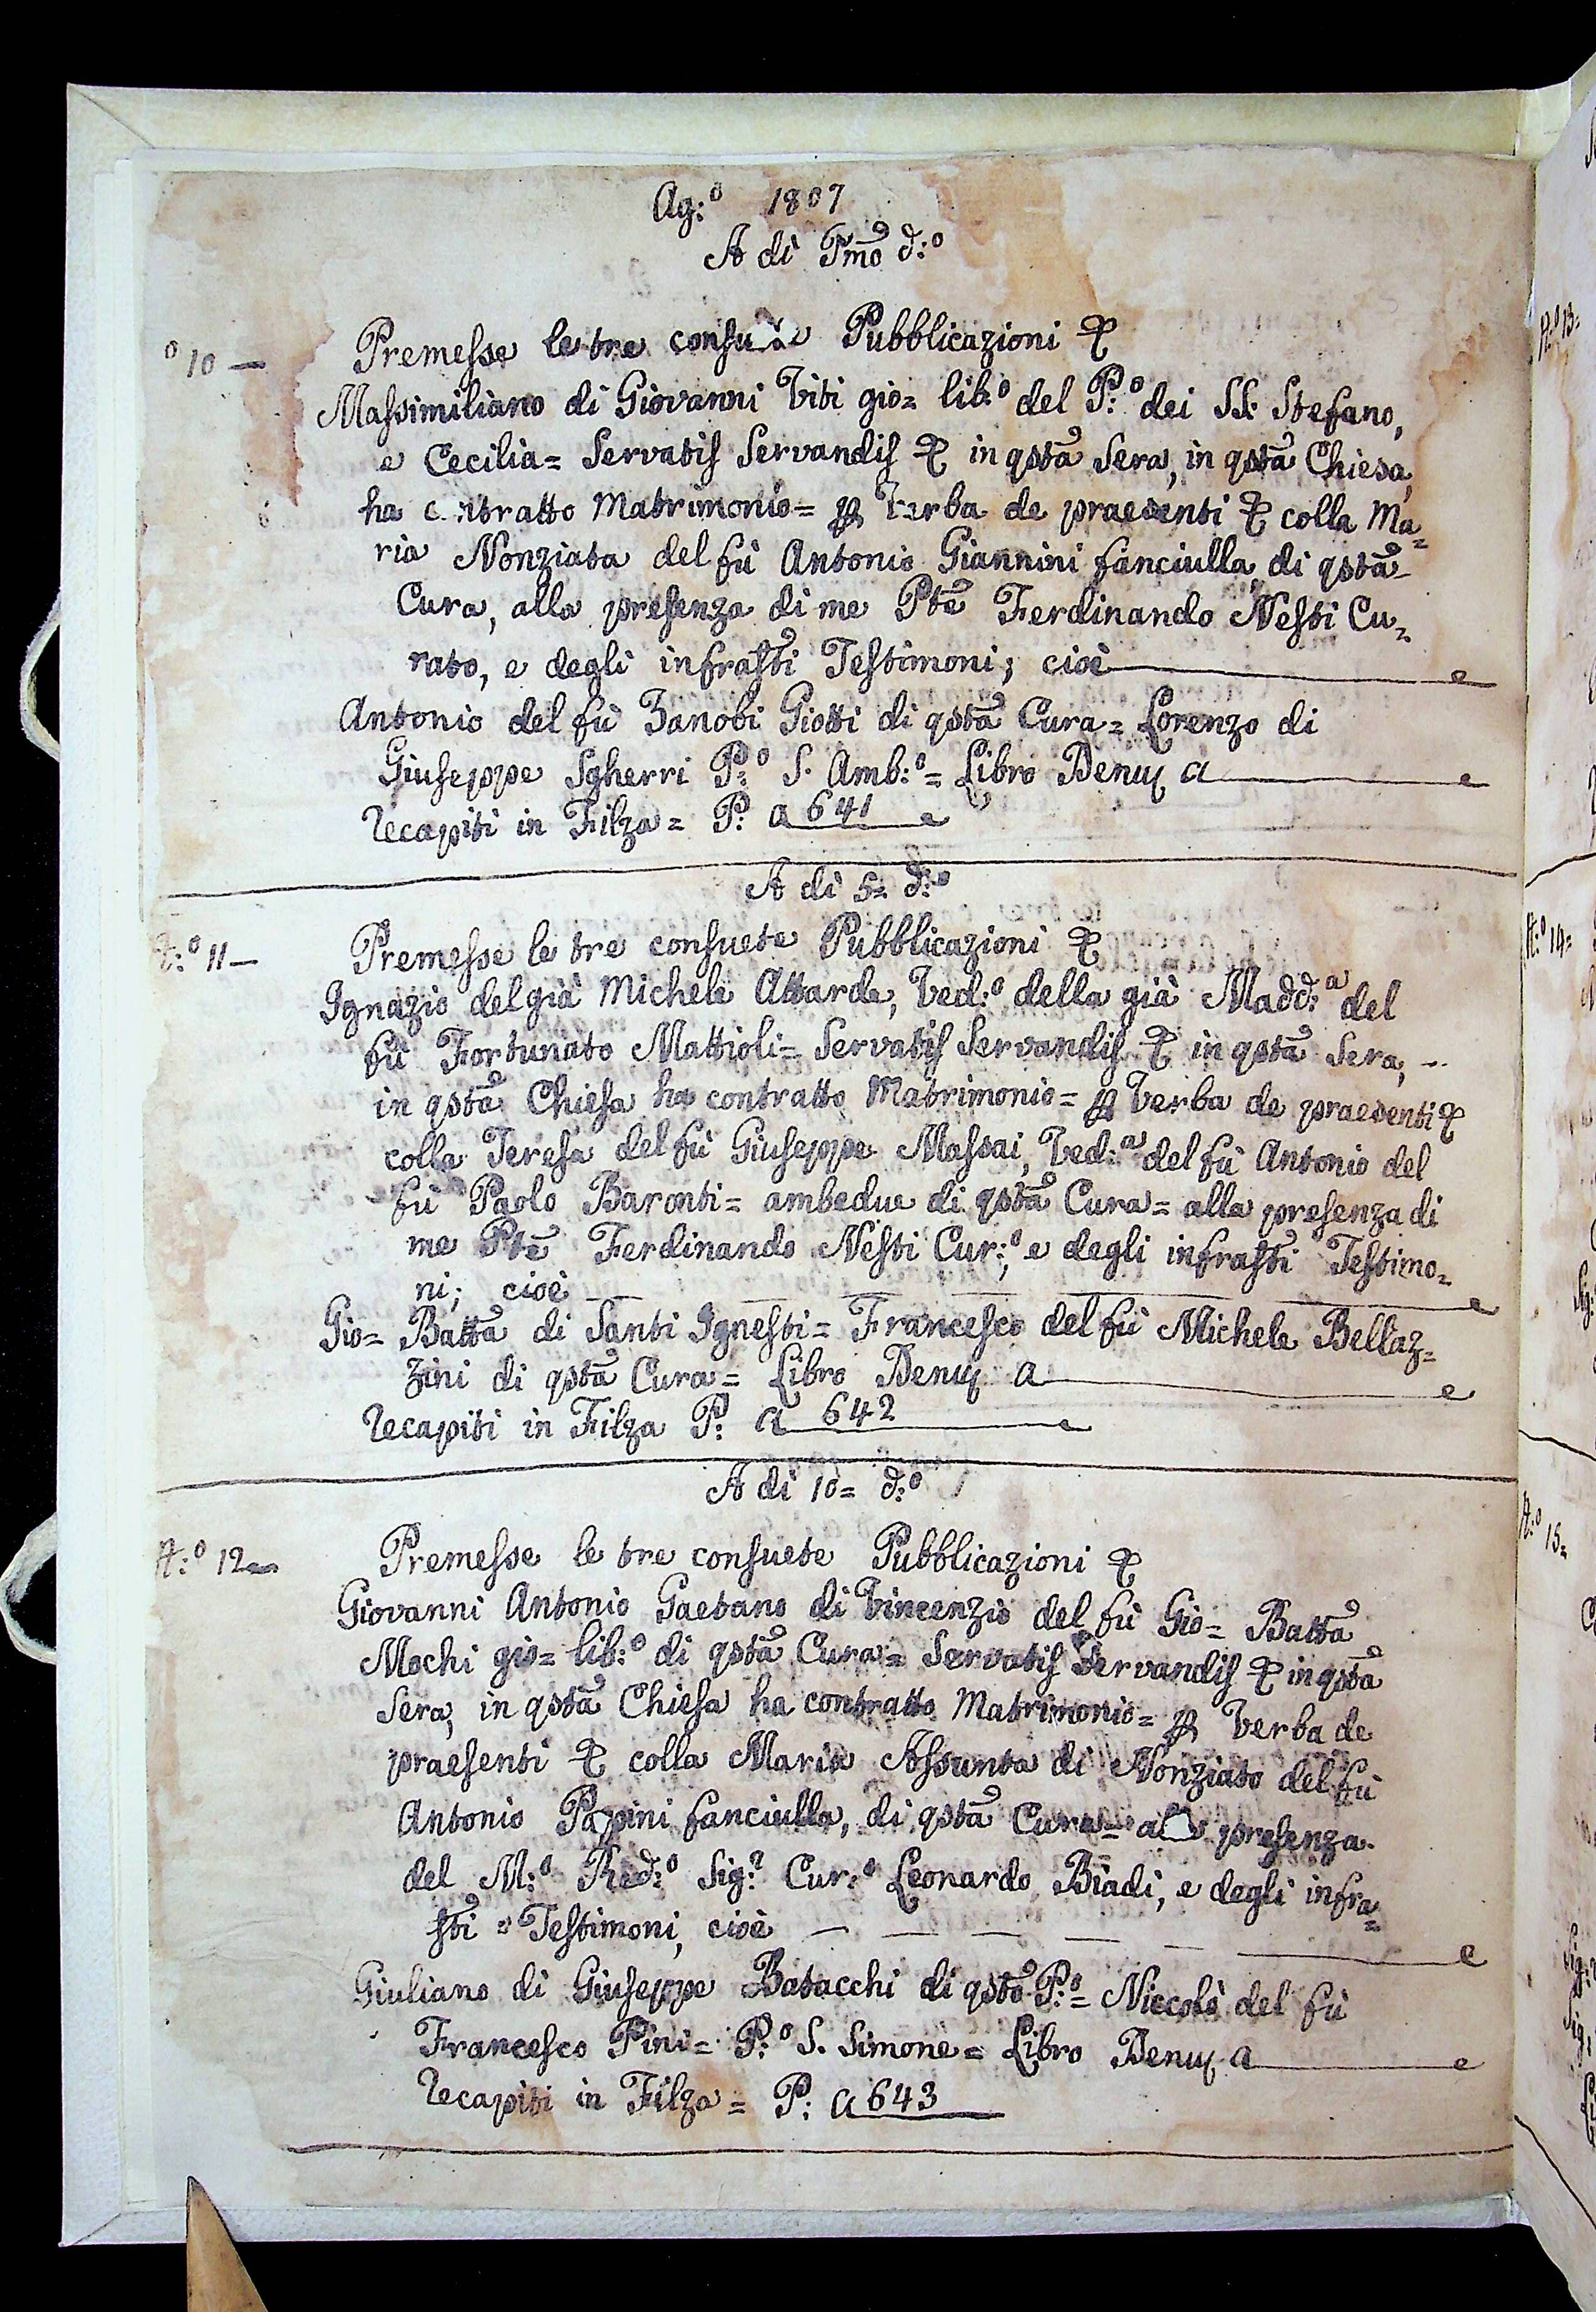 Ag:º 1807
A dì Pmõ d:º
º 10 — Premesse le tre consue Pubblicazioni &
Massimiliano di Giovanni Viti gio= lib:º del P:º dei SS: Stefano,
e Cecilia= Servatis Servandis & in qstã Sera, in qstã Chiesa,
ha contratto Matrimonio= ꝑ Verba de praesenti & colla Ma=
ria Nonziata del fù Antonio Giannini fanciulla, di qstã
Cura, alla presenza di me Ptẽ Ferdinando Nesti Cu=
rato, e degli infrastĩ Testimoni; cioè
Antonio del fù Zanobi Giotti di qstã Cura= Lorenzo di
Giuseppe Sgherri P:º S. Amb:º= Libro Denuꝫ a
Recapiti in Filza= P: a 641
A dì 5= d:º
N:º 11 — Premesse le tre consuete Pubblicazioni &
Ignazio del già Michele Attarde, Ved:º della già Madd:ª del
fù Fortunato Mattioli= Servatis Servandis & in qstã Sera, --
in qstã Chiesa ha contratto Matrimonio= ꝑ Verba de praesenti &
colla Teresa del fù Giuseppe Massai, Ved:ª del fù Antonio del
fù Paolo Baronti= ambedue di qstã Cura= alla presenza di
me Ptẽ Ferdinando Nesti Cur:º, e degli infrastĩ Testimo=
ni; cioè
Gio= Battã di Santi Ignesti= Francesco del fù Michele Bellaz=
zini di qstã Cura= Libro Denuꝫ a
Recapiti in Filza P: a 642
A dì 10= d:º
N:º 12 — Premesse le tre consuete Pubblicazioni &
Giovanni Antonio Gaetano di Vincenzio del fù Gio= Battã
Mochi gio= lib:º di qstã Cura= Servatis Servandis & in qstã
Sera, in qstã Chiesa ha contratto Matrimonio= ꝑ Verba de
praesenti & colla Maria Assunta di Nonziato del fù
Antonio Papini fanciulla, di qstã Cura= alla presenza
del M:º Red:º Sig:r Cur:º Leonardo Biadi, e degli infra=
stĩ = Testimoni, cioè
Giuliano di Giuseppe Batacchi di qstõ P:º= Niccolò del fù
Francesco Pini= P:º S. Simone= Libro Denuꝫ a
Recapiti in Filza= P: a 643
N:º 13=
N:º 14=
N:º 15=